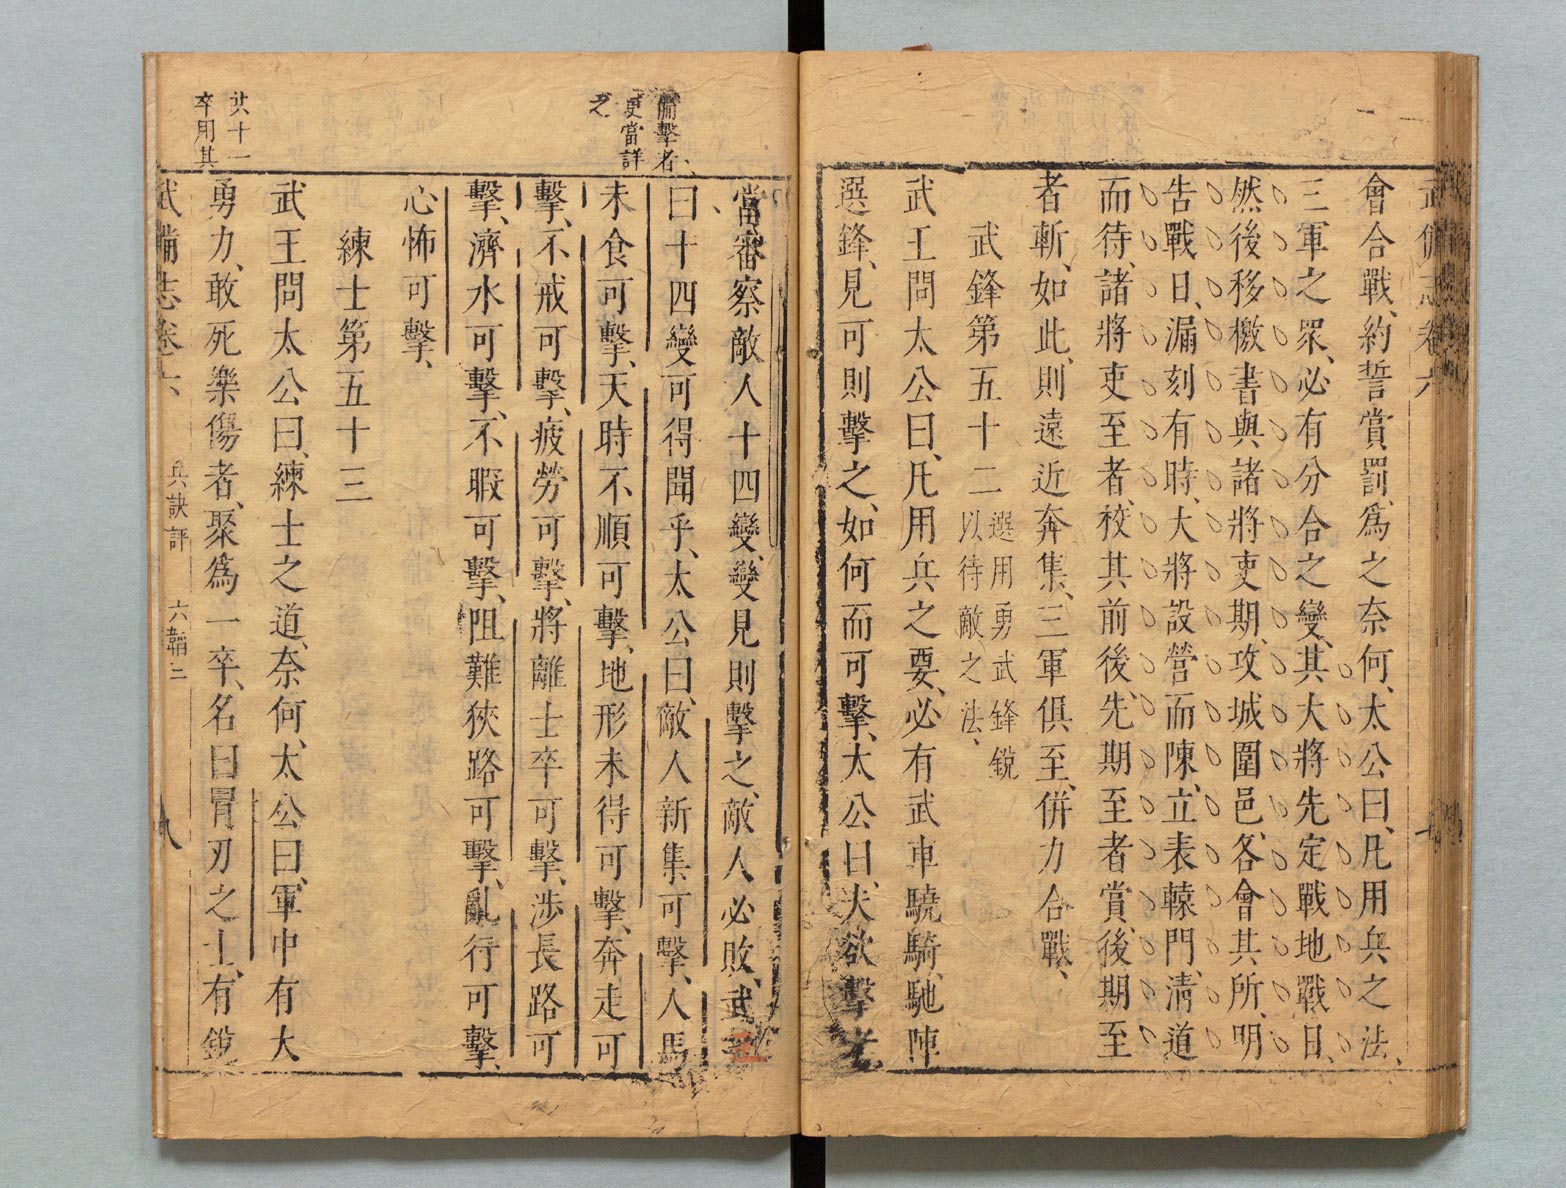 武備志卷六
會合戰、約誓賞罰、爲之奈何、太公曰、凡用兵之法、
三軍之眾、必有分合之變、其大將先定戰地戰日、
然後移檄書與諸將吏期、攻城圍邑、各會其所、明
告戰日、漏刻有時、大將設營而陳、立表轅門、清道
而待、諸將吏至者、校其前後、先期至者賞、後期至
者斬、如此、則遠近奔集、三軍俱至、併力合戰、
武鋒第五十二
選用勇武鋒銳
以待敵之法、
武王問太公曰、凡用兵之要、必有武車驍騎、馳陣
選鋒、見可則擊之、如何而可擊、太公曰、夫欲擊者、
當審察敵人十四變、變見則擊之、敵人必敗、武王
曰、十四變可得聞乎、太公曰、敵人新集可擊、人馬
未食可擊、天時不順可擊、地形未得可擊、奔走可
擊、不戒可擊、疲勞可擊、將離士卒可擊、涉長路可
擊、濟水可擊、不暇可擊、阻難狹路可擊、亂行可擊、
心怖可擊、
練士第五十三
武王問太公曰、練士之道、奈何、太公曰、軍中有大
勇力、敢死樂傷者、聚爲一卒、名曰冒刃之士、有銳
備擊者、
更當詳
之
共十一
卒用其
武備志卷六 兵訣評 六韜三 八